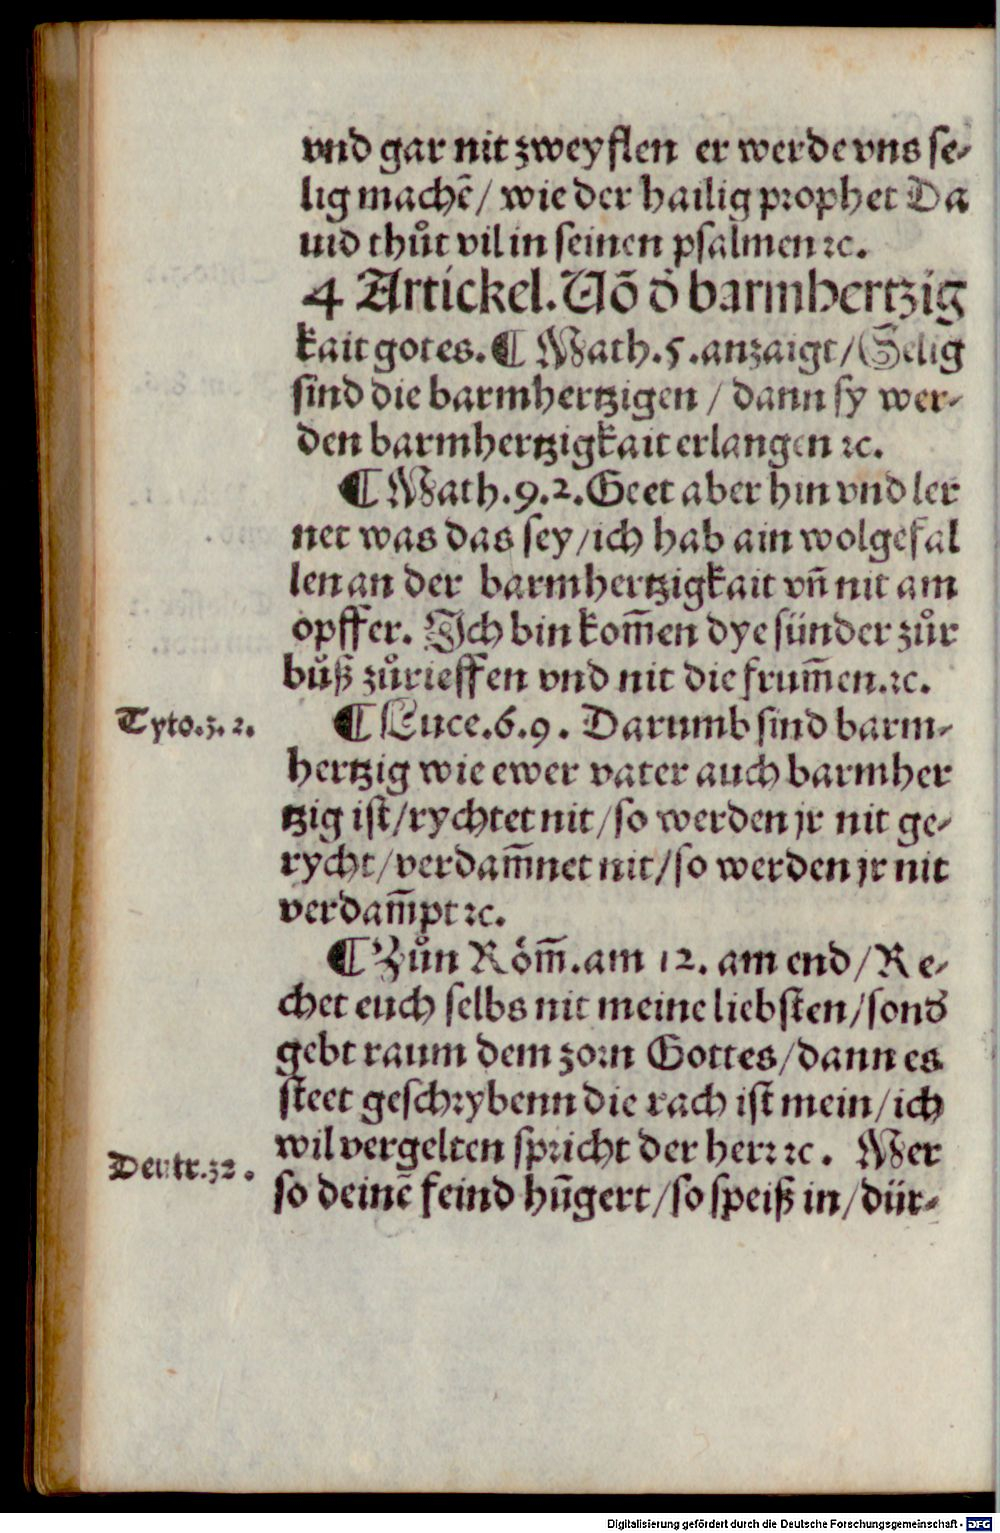 vnd gar nit zweyflen er werde vns se-
lig machē/ wie der hailig prophet Da
uid thůt vil in seinen psalmen ꝛc.
4 Artickel. Võ d̕ barmhertzig
kait gotes. ¶ Math. 5. anzaigt/ Selig
sind die barmhertzigen / dann sy wer-
den barmhertzigkait erlangen ꝛc.
¶ Math. 9. 2. Geet aber hin vnd ler
net was das sey/ ich hab ain wolgefal
len an der barmhertzigkait vñ nit am
opffer. Ich bin kom̄en dye sünder zůr
bůß zůrieffen vnd nit die frum̄en. ꝛc.
Tyto. 3. 2.
¶ Luce. 6. 9. Darumb sind barm-
hertzig wie ewer vater auch barmher
tzig ist/ rychtet nit/ so werden jr nit ge-
rycht/ verdam̄net nit/ so werden jr nit
verdam̄pt ꝛc.
¶ Zůn Röm̄. am 12. am end/ Re-
chet euch selbs nit meine liebsten/ sond̕
gebt raum dem zorn Gottes/ dann es
steet geschrybenn die rach ist mein/ ich
wil vergelten spricht der herr ꝛc. Wer
Deutr. 32.
so deinē feind hūgert/ so speiß in/ dür-
Digitalisierung gefördert durch die Deutsche Forschungsgemeinschaft - DFG